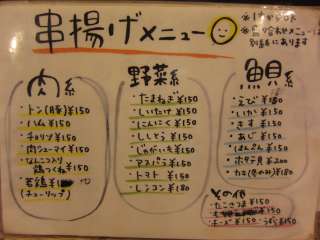 串揚げメニュー
肉系
・トン(豚)¥150
・ハム¥150
・チョリソ¥150
・肉シューマイ¥150
・なんこつ入り
鶏つくね¥150
・若鶏
(チューリップ)
野菜系
・たまねぎ¥150
・しいたけ¥150
・にんにく¥150
・ししとう¥150
・じゃがいも¥150
・アスパラ¥150
・トマト¥150
・レンコン¥180
魚貝系
・えび
・いか¥150
・きす¥150
・あじ¥150
・はんぺん¥150
・ホタテ貝¥200
・カキ(冬のみ)¥180
その他
・たこさつま¥150
・チーズ¥150
・うずら¥150